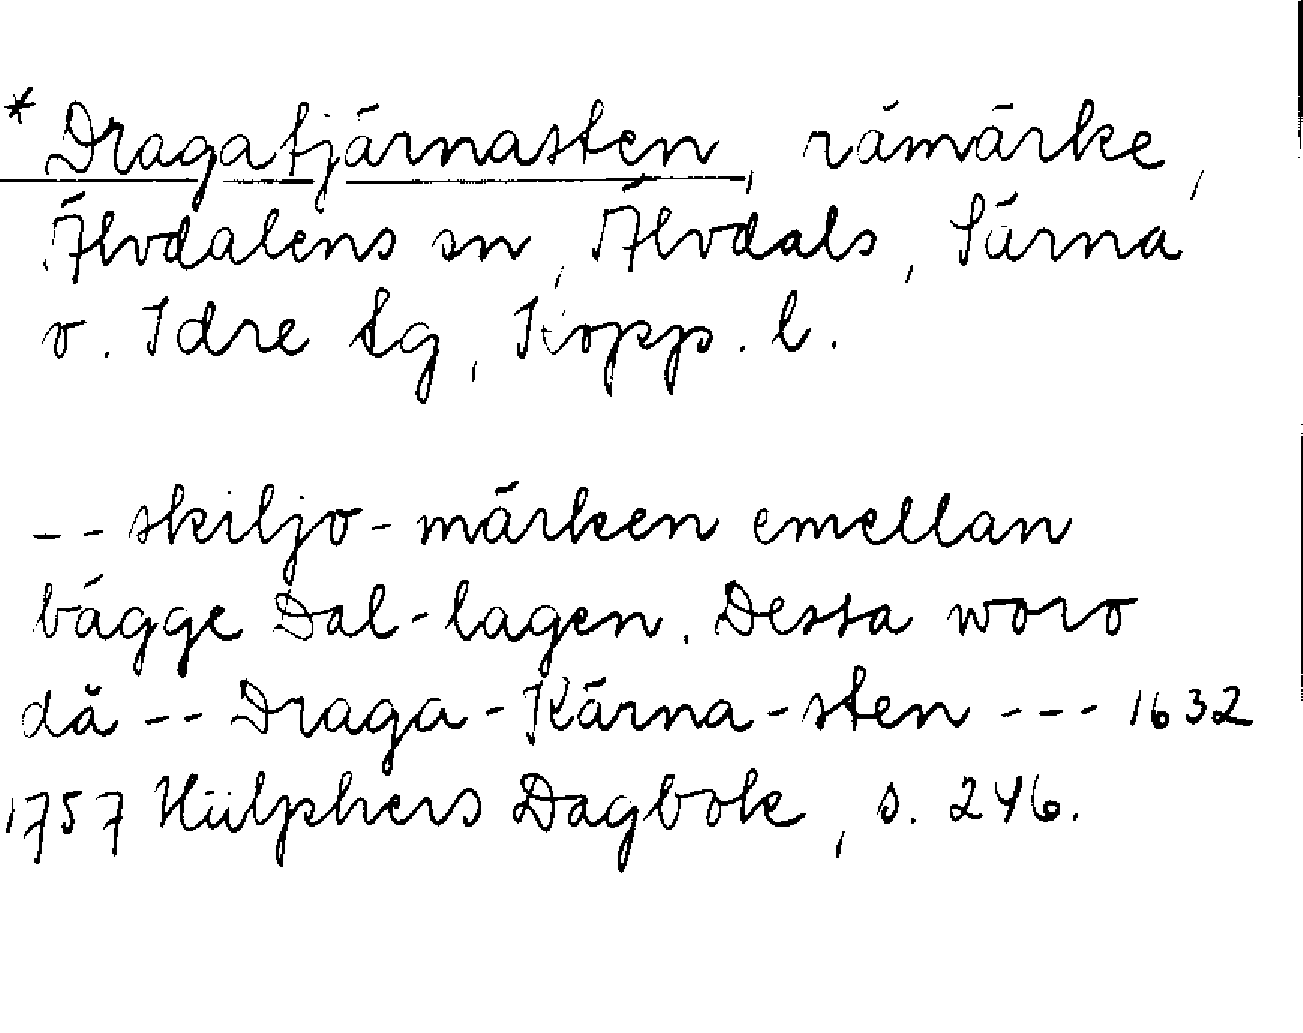 * Dragatjärnasten, råmärke,
Älvdalens sn, Älvdals, Särna
o. Idre tg, Kopp. l.
-- skiljo-märken emellan
bägge Dal-lagen. Dessa woro
då -- Draga-Kärna-sten --- 1632
1757 Hülphers Dagbok, s. 246.